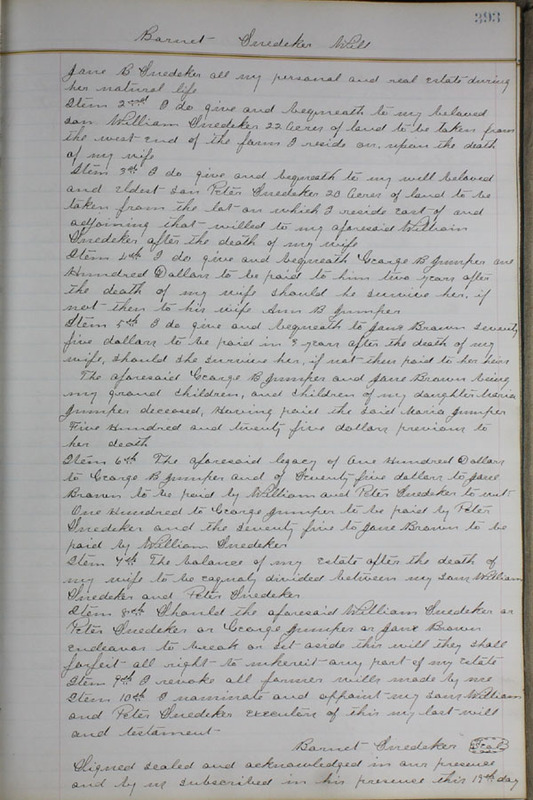 393
Barnet Snedeker Will
Jane B Snedeker all my personal and real estate during
her natural life
Item 2nd I do give and bequeath to my beloved
son William Snedeker 22 acres of land to be taken from
the west end of the farm I reside on, upon the death
of my wife
Item 3rd I do give and bequeath to my well beloved
and eldest son Peter Snedeker 20 acres of land to be
taken from the lot on which I reside east of and
adjoining that willed to my aforesaid William
Snedeker after the death of my wife
Item 4th I do give and bequeath George B Jumper one
Hundred Dollars to be paid to him two years after
the death of my wife should he survive her, if
not then to his wife Ann B Jumper
Item 5th I do give and bequeath to Jane Brown seventy
five dollars to be paid in 3 years after the death of my
wife, should she survive her, if not then paid to her heirs
The aforesaid George B Jumper and Jane Brown being
my grand children, and children of my daughter Maria
Jumper deceased, Having paid the said Maria Jumper
Five Hundred and twenty five dollars previous to
her death
Item 6th The aforesaid legacy of One Hundred Dollars
to George B Jumper and of Seventy five dollars to Jane
Brown to be paid by William and Peter Snedeker to wit
One Hundred to George Jumper to be paid by Peter
Snedeker and the seventy five to Jane Brown to be
paid by William Snedeker
Item 7th The balance of my estate after the death of
my wife to be equaly divided between my sons William
Snedeker and Peter Snedeker
Item 8th Should the aforesaid William Snedeker or
Peter Snedeker or George Jumper or Jane Brown
endeavor to break or set aside this will they shall
forfeit all right to inhereit any part of my estate
Item 9th I revoke all former wills made by me
Item 10th I nominate and appoint my sons William
and Peter Snedeker executors of this my last will
and testament
Barnet Snedeker Seal
Signed sealed and acknowledged in our presence
and by us subscribed in his presence this 19th day